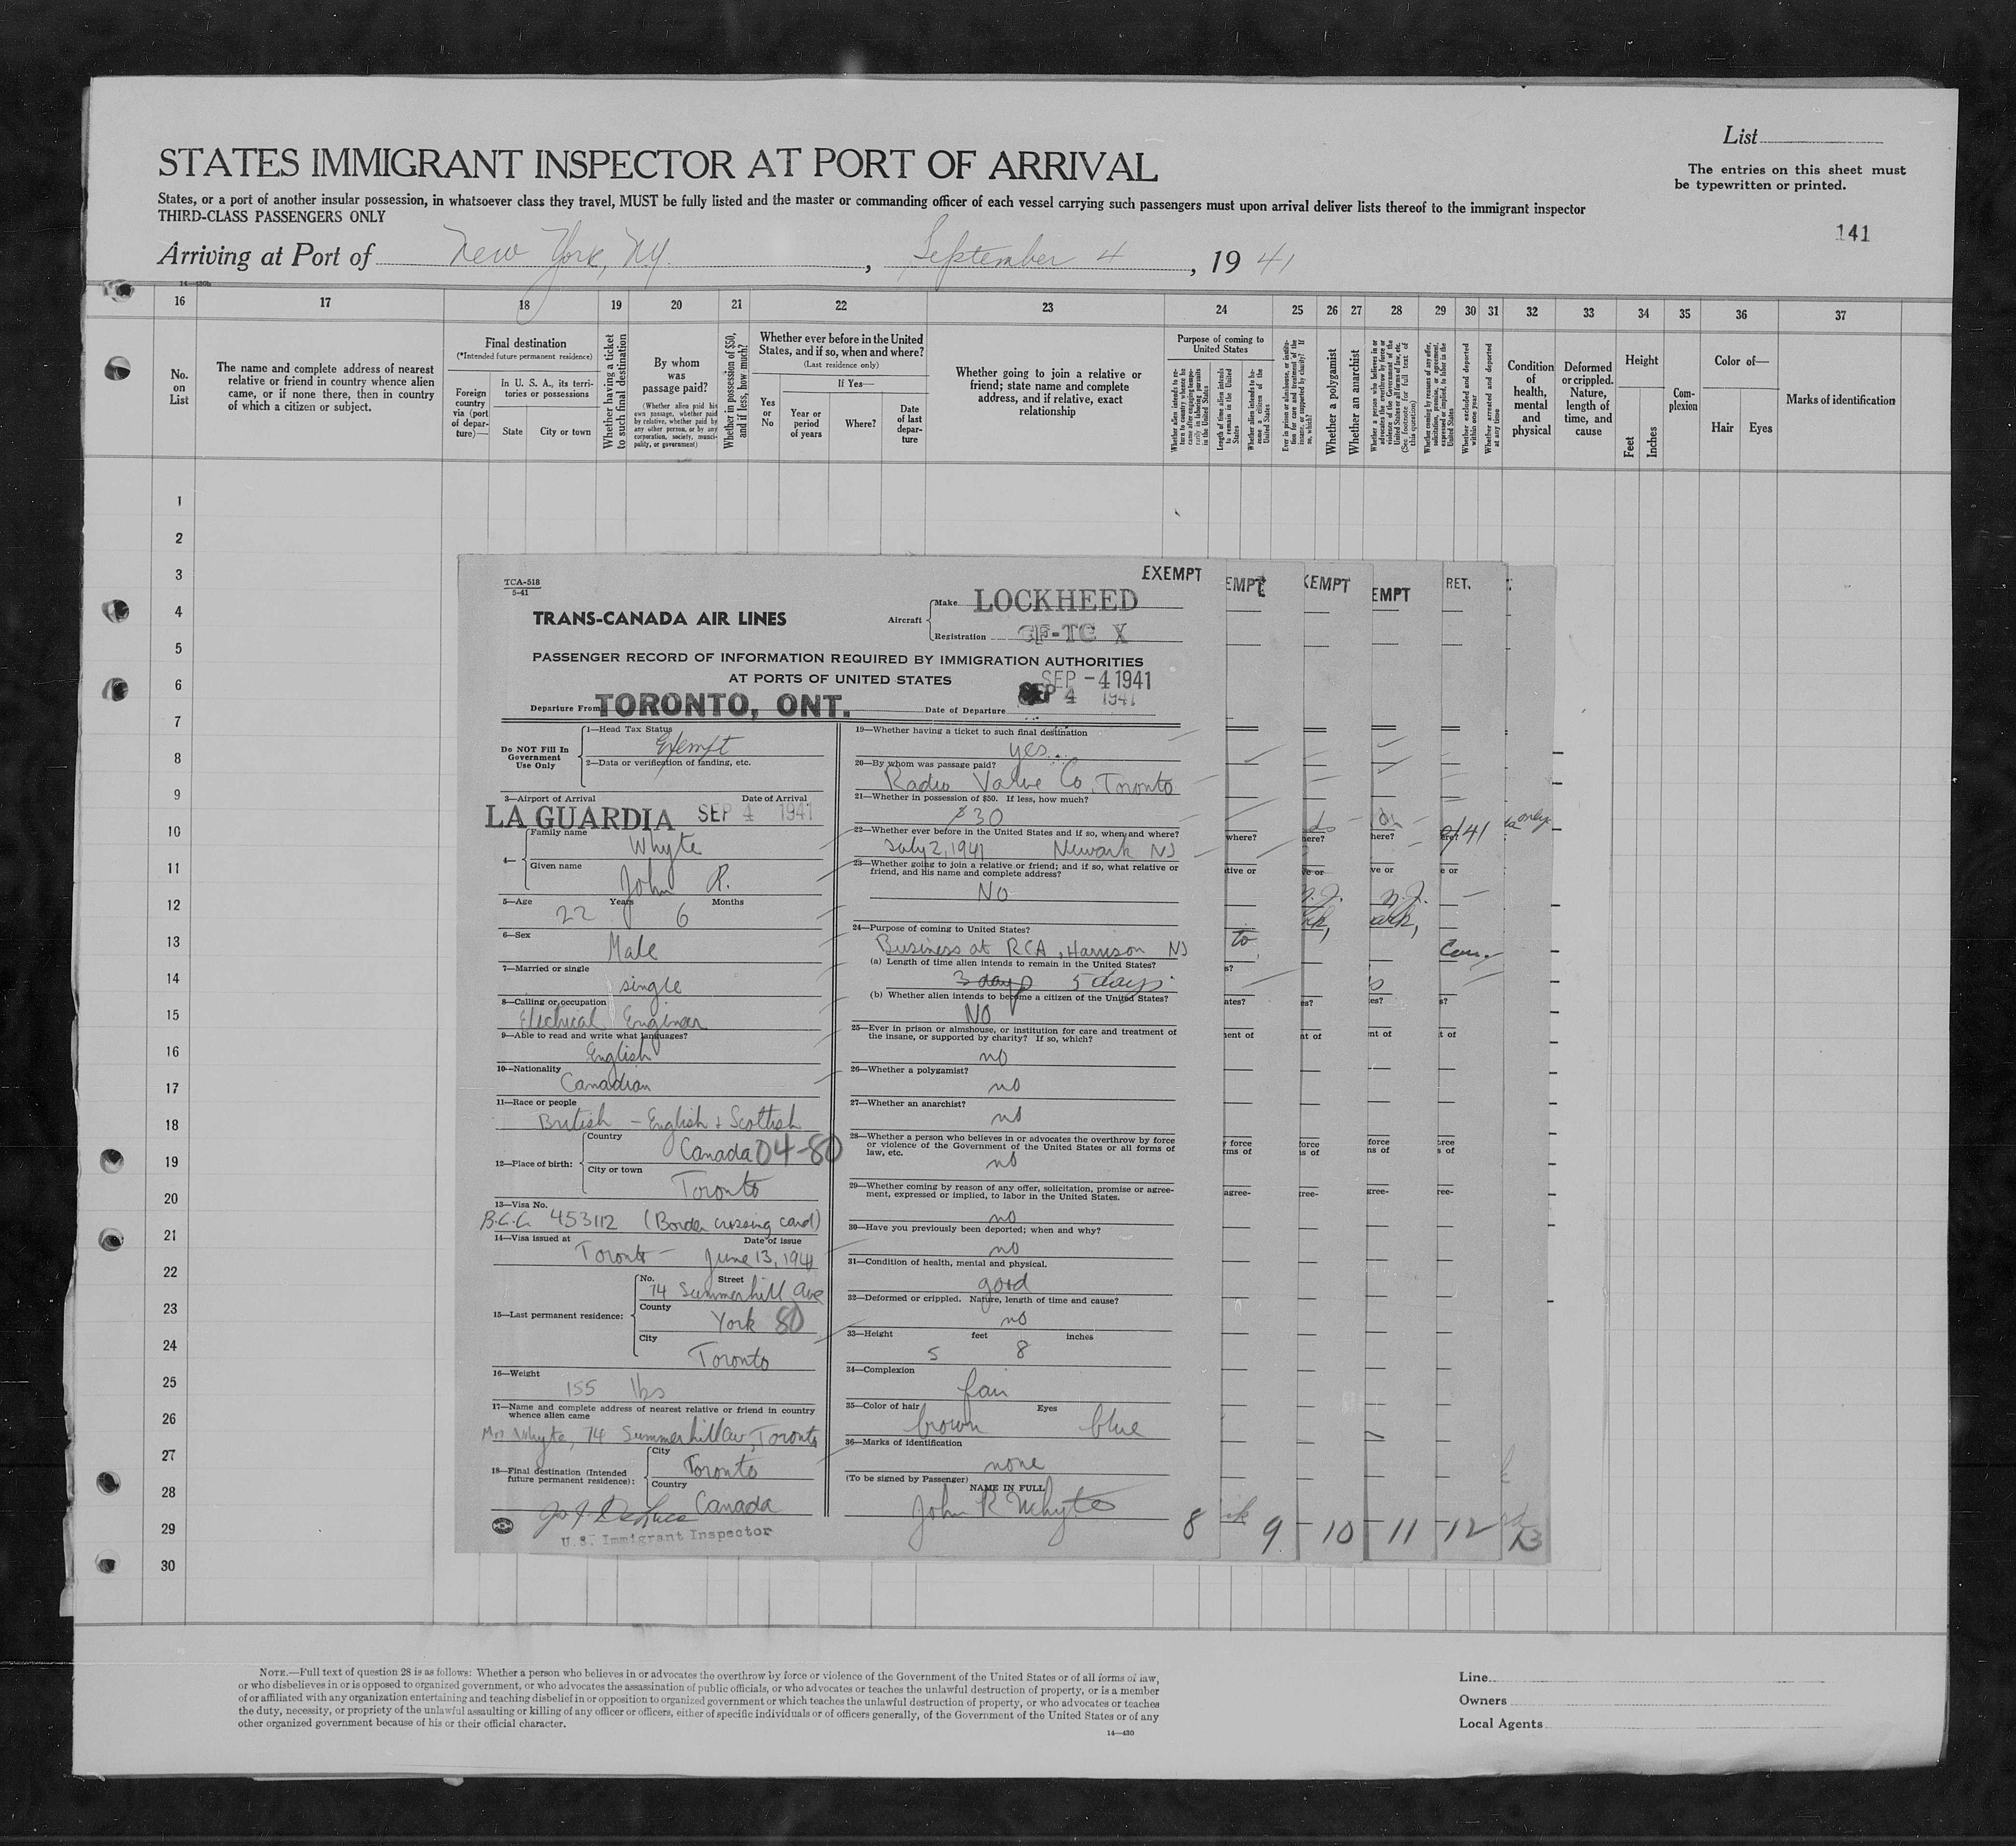 List
STATES IMMIGRANT INSPECTOR AT PORT OF ARRIVAL
The entries on this sheet must
be typewritten or printed.
States, or a port of another insular possession, in whatsoever class they travel, MUST be fully listed and the master or commanding officer of each vessel carrying such passengers must upon arrival deliver lists thereof to the immigrant inspector
THIRD-CLASS PASSENGERS ONLY
141
Arriving at Port of New York, N.Y. , September 4 , 19 41
16 17 18 19 20 21 22 23 24 25 26 27 28 29 30 31 32 33 34 35 36 37
No.
on
List
The name and complete address of nearest
relative or friend in country whence alien
came, or if none there, then in country
of which a citizen or subject.
Final destination
(*Intended future permanent residence)
Foreign
country
via (port
of depar-
ture)—
In U. S. A., its terri-
tories or possessions
State City or town
Whether having a ticket
to such final destination
By whom
was
passage paid?
(Whether alien paid his
own passage, whether paid
by relative, whether paid by
any other person, or by any
corporation, society, munici-
pality, or government)
Whether in possession of $50,
and if less, how much?
Whether ever before in the United
States, and if so, when and where?
(Last residence only)
If Yes—
Yes
or
No
Year or
period
of years
Where?
Date
of last
depar-
ture
Whether going to join a relative or
friend; state name and complete
address, and if relative, exact
relationship
Purpose of coming to
United States
Length of time alien intends
to remain in the United
States
Whether a polygamist
Whether an anarchist
Whether excluded and deported
within one year
Whether arrested and deported
at any time
Condition
of
health,
mental
and
physical
Deformed
or crippled.
Nature,
length of
time, and
cause
Height
Feet
Inches
Com-
plexion
Color of—
Hair Eyes
Marks of identification
1
2
3
4
5
6
7
8
9
10
11
12
13
14
15
16
17
18
19
20
21
22
23
24
25
26
27
28
29
30
TCA-518
5-41
EXEMPT
TRANS-CANADA AIR LINES
Aircraft
Make LOCKHEED
Registration CF-TC X
PASSENGER RECORD OF INFORMATION REQUIRED BY IMMIGRATION AUTHORITIES
AT PORTS OF UNITED STATES
SEP -4 1941
Departure From TORONTO, ONT. Date of Departure SEP 4 1941
Do NOT Fill In
Government
Use Only
1—Head Tax Status
Exempt
2—Data or verification of landing, etc.
3—Airport of Arrival Date of Arrival
LA GUARDIA SEP 4 1941
4— Family name
Whyte
Given name
John R.
5—Age Years Months
22 6
6—Sex
Male
7—Married or single
single
8—Calling or occupation
Electrical Engineer
9—Able to read and write what languages?
English
10—Nationality
Canadian
11—Race or people
British - English + Scottish
12—Place of birth:
Country
Canada 04-80
City or town
Toronto
13—Visa No.
B.C.C. 453112 (Border crossing card)
14—Visa issued at Date of issue
Toronto - June 13, 1941
15—Last permanent residence:
No. Street
74 Summerhill Ave
County
York 80
City
Toronto
16—Weight
155 lbs
17—Name and complete address of nearest relative or friend in country
whence alien came
Mrs Whyte, 74 Summerhill Av, Toronto
18—Final destination (Intended
future permanent residence):
City
Toronto
Country
Canada
U.S. Immigrant Inspector
19—Whether having a ticket to such final destination
yes.
20—By whom was passage paid?
Radio Valve Co, Toronto
21—Whether in possession of $50. If less, how much?
$30
22—Whether ever before in the United States and if so, when and where?
July 2, 1941 Newark NJ
23—Whether going to join a relative or friend; and if so, what relative or
friend, and his name and complete address?
No
24—Purpose of coming to United States?
Business at RCA, Harrison NJ
(a) Length of time alien intends to remain in the United States?
3 days 5 days
(b) Whether alien intends to become a citizen of the United States?
NO
25—Ever in prison or almshouse, or institution for care and treatment of
the insane, or supported by charity? If so, which?
no
26—Whether a polygamist?
no
27—Whether an anarchist?
no
28—Whether a person who believes in or advocates the overthrow by force
or violence of the Government of the United States or all forms of
law, etc.
no
29—Whether coming by reason of any offer, solicitation, promise or agree-
ment, expressed or implied, to labor in the United States.
no
30—Have you previously been deported; when and why?
no
31—Condition of health, mental and physical.
good
32—Deformed or crippled. Nature, length of time and cause?
no
33—Height feet inches
5 8
34—Complexion
fair
35—Color of hair Eyes
brown blue
36—Marks of identification
none
(To be signed by Passenger)
NAME IN FULL
John R Whyte
8 9 10 11 12 13
NOTE.—Full text of question 28 is as follows: Whether a person who believes in or advocates the overthrow by force or violence of the Government of the United States or of all forms of law,
or who disbelieves in or is opposed to organized government, or who advocates the assassination of public officials, or who advocates or teaches the unlawful destruction of property, or is a member
of or affiliated with any organization entertaining and teaching disbelief in or opposition to organized government or which teaches the unlawful destruction of property, or who advocates or teaches
the duty, necessity, or propriety of the unlawful assaulting or killing of any officer or officers, either of specific individuals or of officers generally, of the Government of the United States or of any
other organized government because of his or their official character.
14—430
Line
Owners
Local Agents